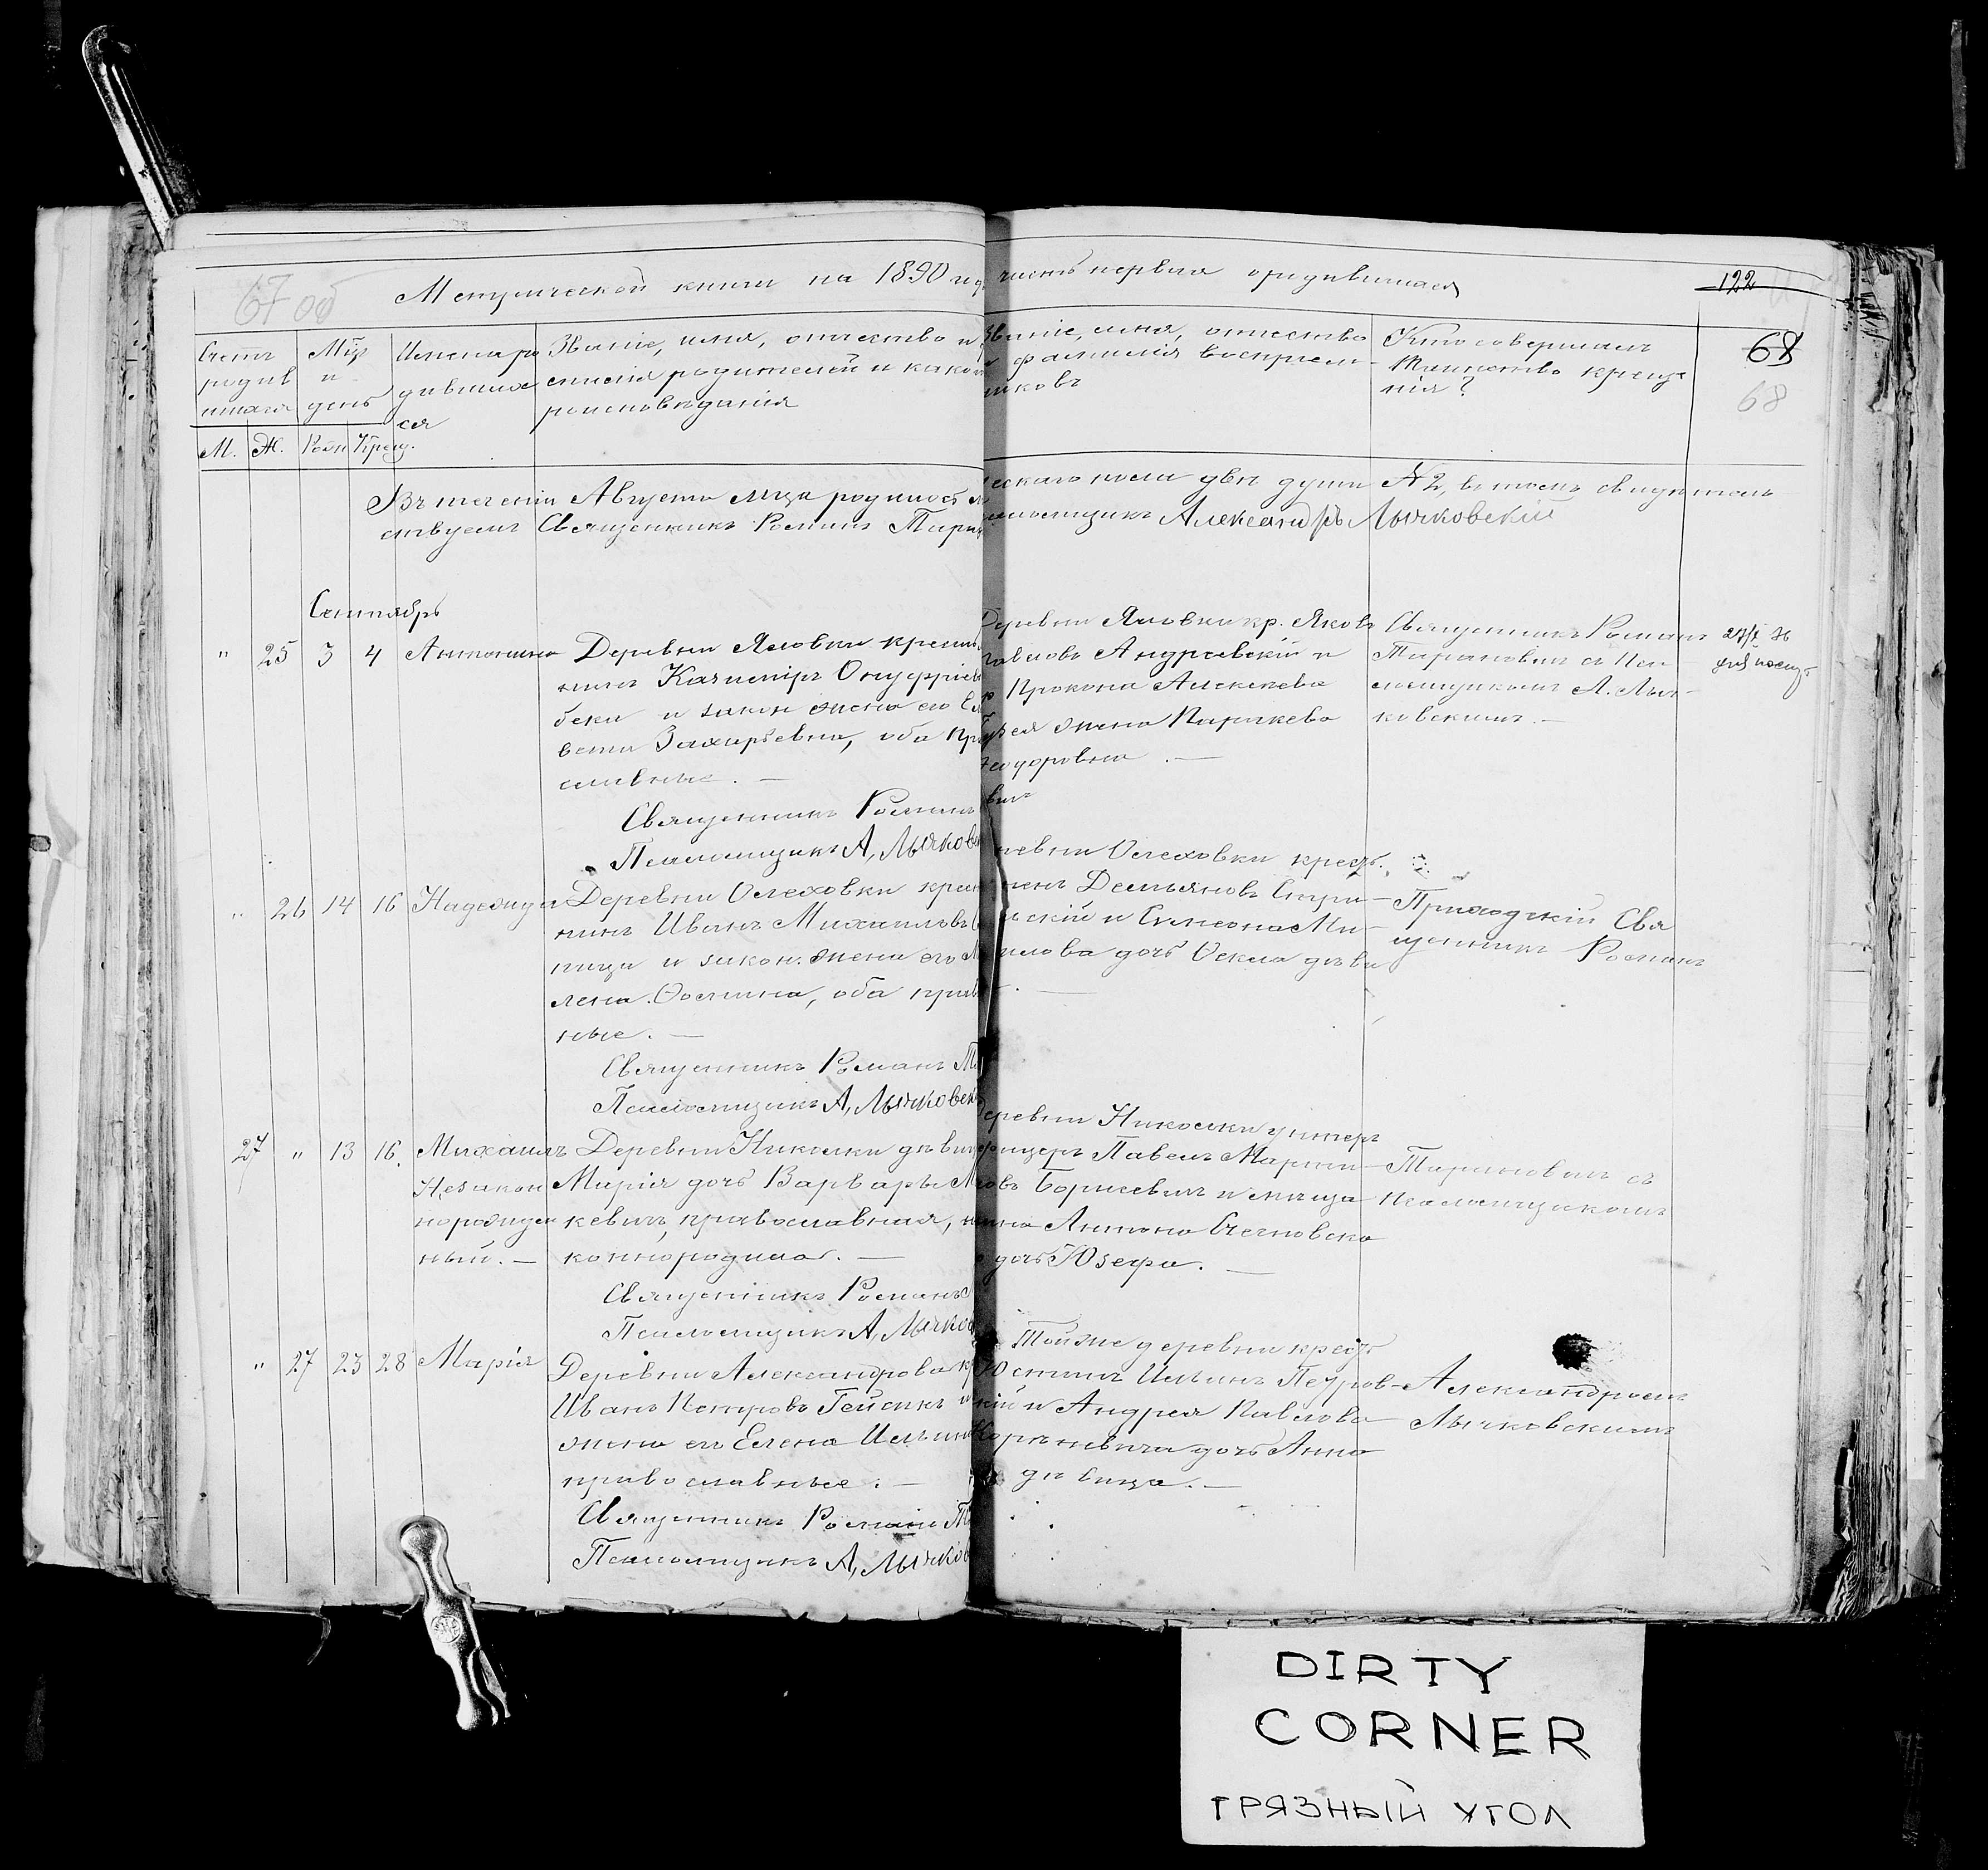 67 об
Метрической книги на 1890 годъ часть первая о родившихся
122
68
68
Счетъ родив шихся
М. Ж.
Мцъ и день
Рожд Крещ.
Имена ро дивших ся
Званіе, имя, отчество и
милія родителей и какой
роисповѣданія
Званіе, имя, отчество
и фамилія воспріем-
никовъ
Кто совершалъ
таинство креще
нія?
Въ теченіи Августа мца родилось
ескаго пола двѣ души №2, въ томъ свидѣтель
ствуемъ Священникъ Романъ
Александръ Лычковскій
Сентябрь
" 25 3 4 Антонина
Деревни Яловки крестья
нинъ Казиміръ Онуфріевъ
и закон жена его
вета Захарьевна, оба пра
славные. —
Священникъ Романъ
Псаломщикъ А, Лычков
Деревни Яловки кр. Яковъ
Павловъ Андреевскій и
Прокопа Алексѣева
жена Параскева
Феодоровна. —
Священникъ Романъ
Тарановичъ съ Пса
ломщикомъ А. Лыч-
ковскимъ. —
" 26 14 16 Надежда
Деревни Олеховки крест
нинъ Иванъ Михаиловъ
ница и закон. жена его
лена Фомина, оба прав
ные. —
Священникъ Романъ
Псаломщикъ А, Лычковск
ревни Олеховки крест.
Демьяновъ
скій и Симеона Ми-
илова дочь Фекла дѣви
Приходскій Свя
щенникъ Романъ
27 " 13 16. Михаилъ
Незакон
норожден
ный. —
Деревни Никольки дѣви
Марія дочь Варвары
кевичъ, православная,
коннородила. —
Священникъ Романъ
Псаломщикъ А, Лычков
Деревни Никольки унтеръ
фицеръ Павелъ Марти-
новъ Борисевичъ и мѣща
нина Антона
дочь Юзефа. —
Тарановичъ съ
псаломщикомъ
" 27 23 28 Марія
Деревни Александрова кр
Иванъ Петровъ Гейсикъ и
жена его Елена Ильина
православные. —
Священникъ Романъ
Псаломщикъ А, Лычков
Тойже деревни крест
Юстинъ Ильинъ Петров-
кій и Андрея Павлова
Корженевича дочь Анна
дѣвица. —
Александромъ
Лычковскимъ
DIRTY
CORNER
ГРЯЗНЫЙ УГОЛ